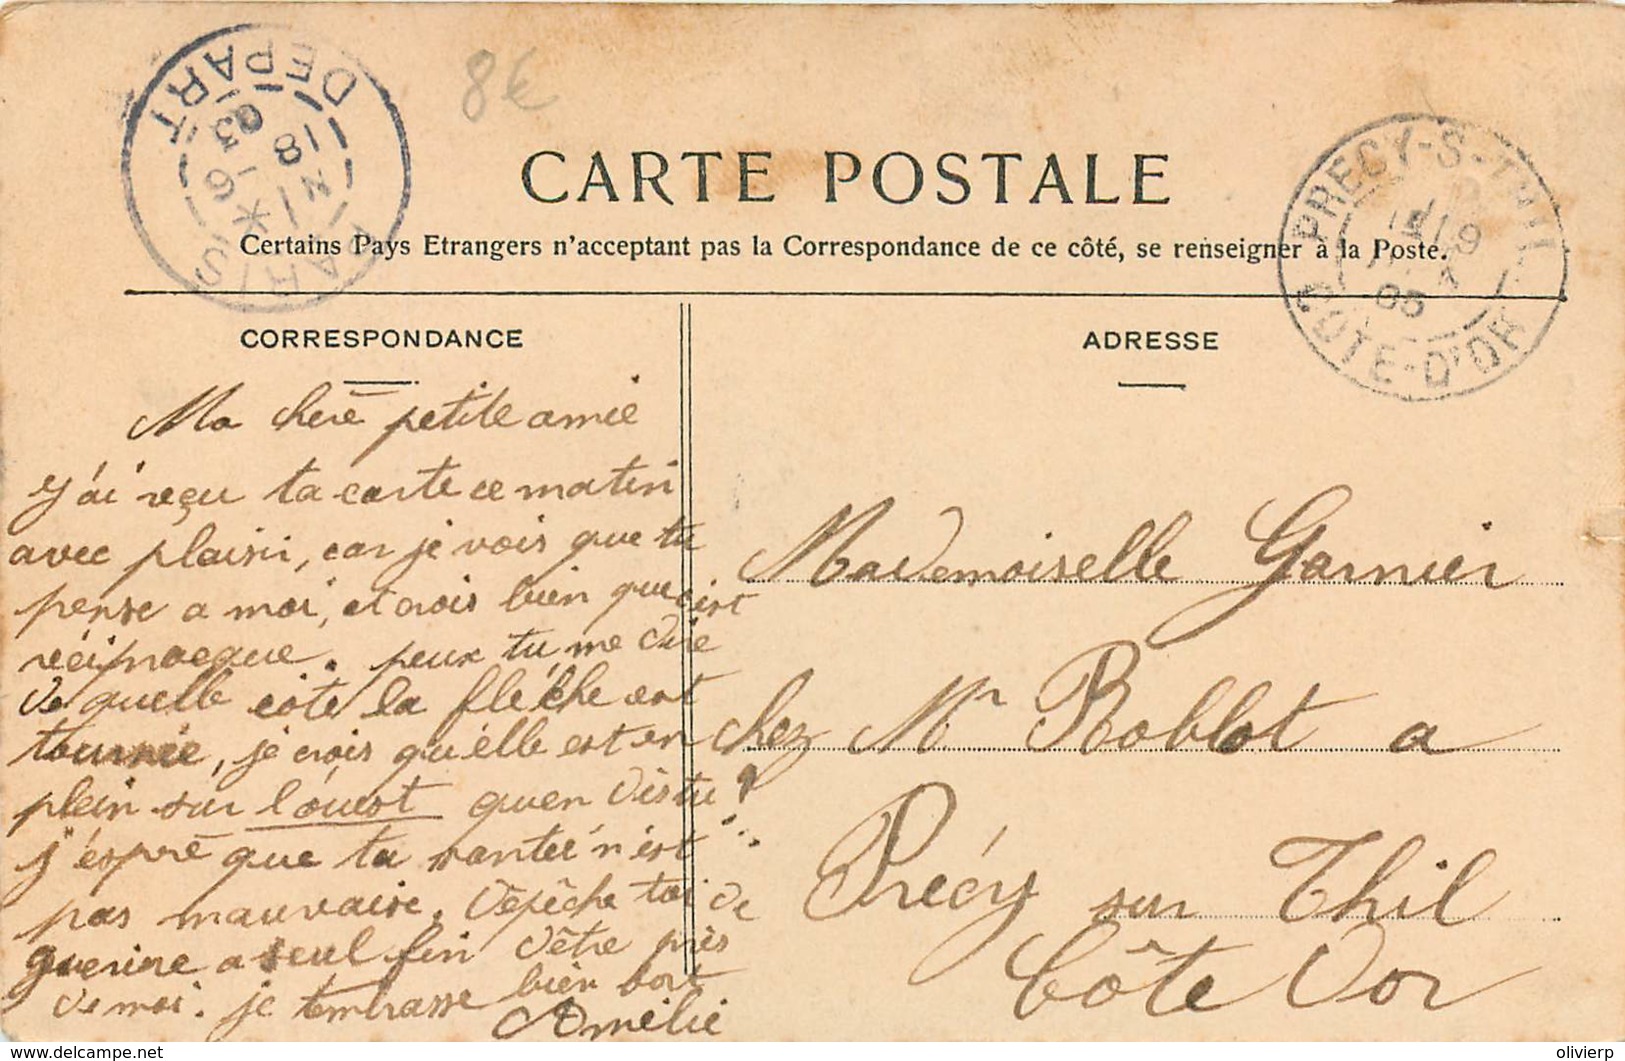 DEPART
18
6
03
PARIS
8€
PRECY-S-THIL
19
05
COTE-D'OR
CARTE POSTALE
Certains Pays Etrangers n'acceptant pas la Correspondance de ce côté, se renseigner à la Poste.
CORRESPONDANCE
Ma chere petite amie
j'ai reçu ta carte ce matin
avec plaisir, car je vois que tu
pense a moi, et crois bien que c'est
réciproque. peux tu me dire
de quelle côte la flêche est
tournée, je crois qu'elle est en
plein sur l'ouest qu'en dis tu?
j'espre que ta santée n'est
pas mauvaise. dépêche toi de
guerire a seul fin d'être près
de moi. je t'embrasse bien fort
Amélie
ADRESSE
Mademoiselle Garnier
chez Mr Roblot a
Précy sur Thil
Côte d'or
delcampe.net
olivierp